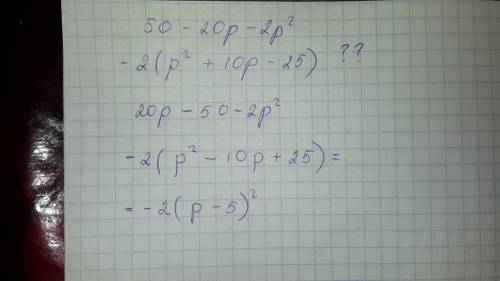 50 - 20p - 2p²
- 2(p² + 10p - 25) ??
20p - 50 - 2p²
- 2(p² - 10p + 25) =
= - 2(p - 5)²